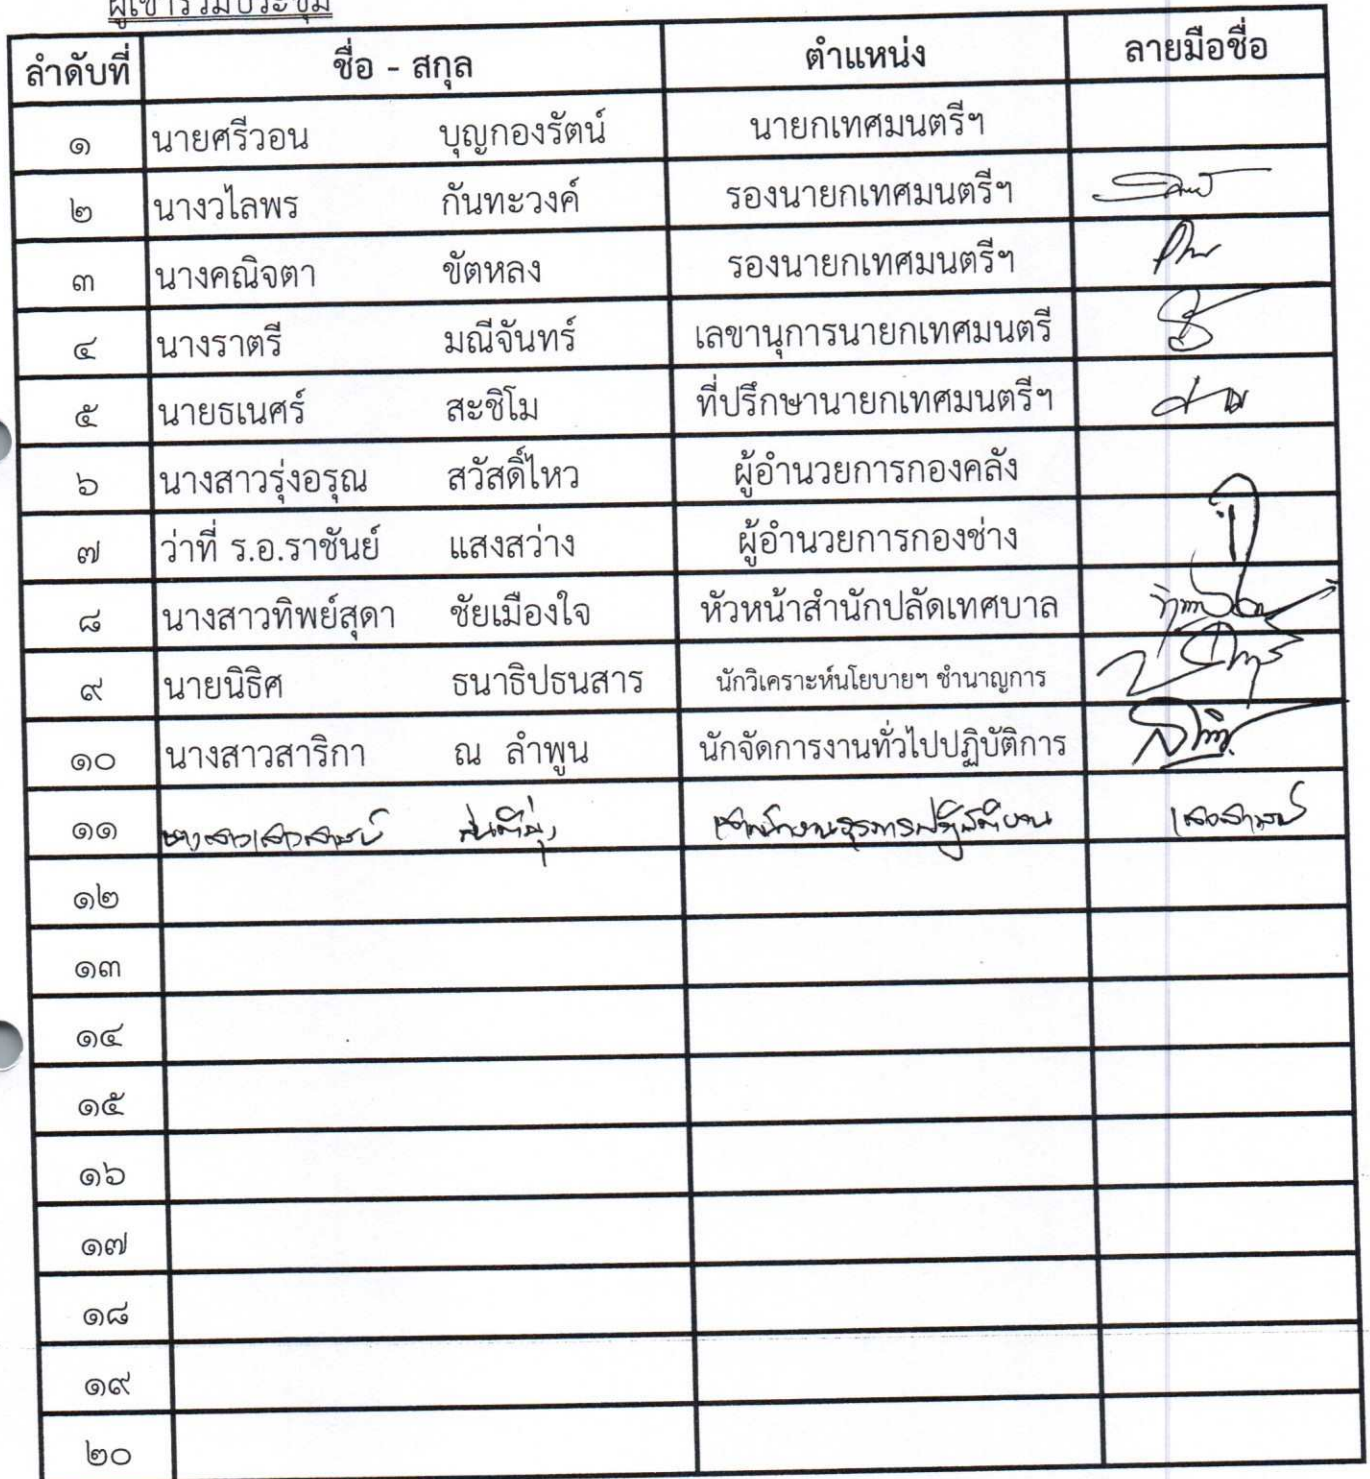 ผู้เข้าร่วมประชุม
ลำดับที่ ชื่อ - สกุล ตำแหน่ง ลายมือชื่อ
๑ นายศรีวอน บุญกองรัตน์ นายกเทศมนตรีฯ
๒ นางวไลพร กันทะวงค์ รองนายกเทศมนตรีฯ
๓ นางคณิจตา ขัตหลง รองนายกเทศมนตรีฯ
๔ นางราตรี มณีจันทร์ เลขานุการนายกเทศมนตรี
๕ นายธเนศร์ สะชิโม ที่ปรึกษานายกเทศมนตรีฯ
๖ นางสาวรุ่งอรุณ สวัสดิ์ไหว ผู้อำนวยการกองคลัง
๗ ว่าที่ ร.อ.ราชันย์ แสงสว่าง ผู้อำนวยการกองช่าง
๘ นางสาวทิพย์สุดา ชัยเมืองใจ หัวหน้าสำนักปลัดเทศบาล
๙ นายนิธิศ ธนาธิปธนสาร นักวิเคราะห์นโยบายฯ ชำนาญการ
๑๐ นางสาวสาริกา ณ ลำพูน นักจัดการงานทั่วไปปฏิบัติการ
๑๑ เจ้าพนักงานธุรการปฏิบัติงาน
๑๒
๑๓
๑๔
๑๕
๑๖
๑๗
๑๘
๑๙
๒๐